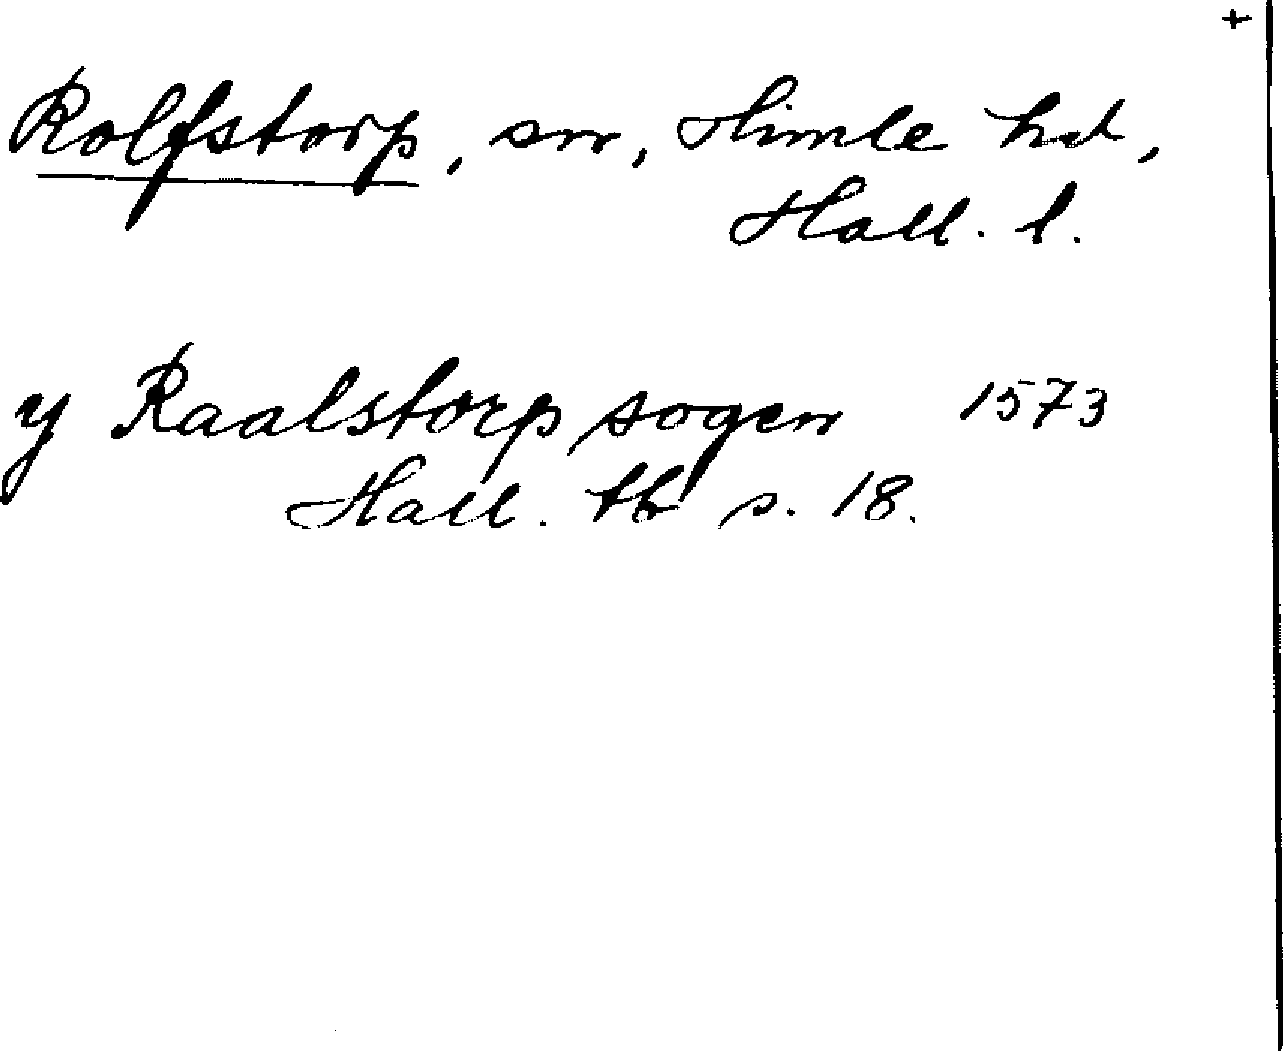 +
Rolfstorp, sn, Himle hd,
Hall. l.
y Raalstorp sogen 1573
Hall. tb s. 18.